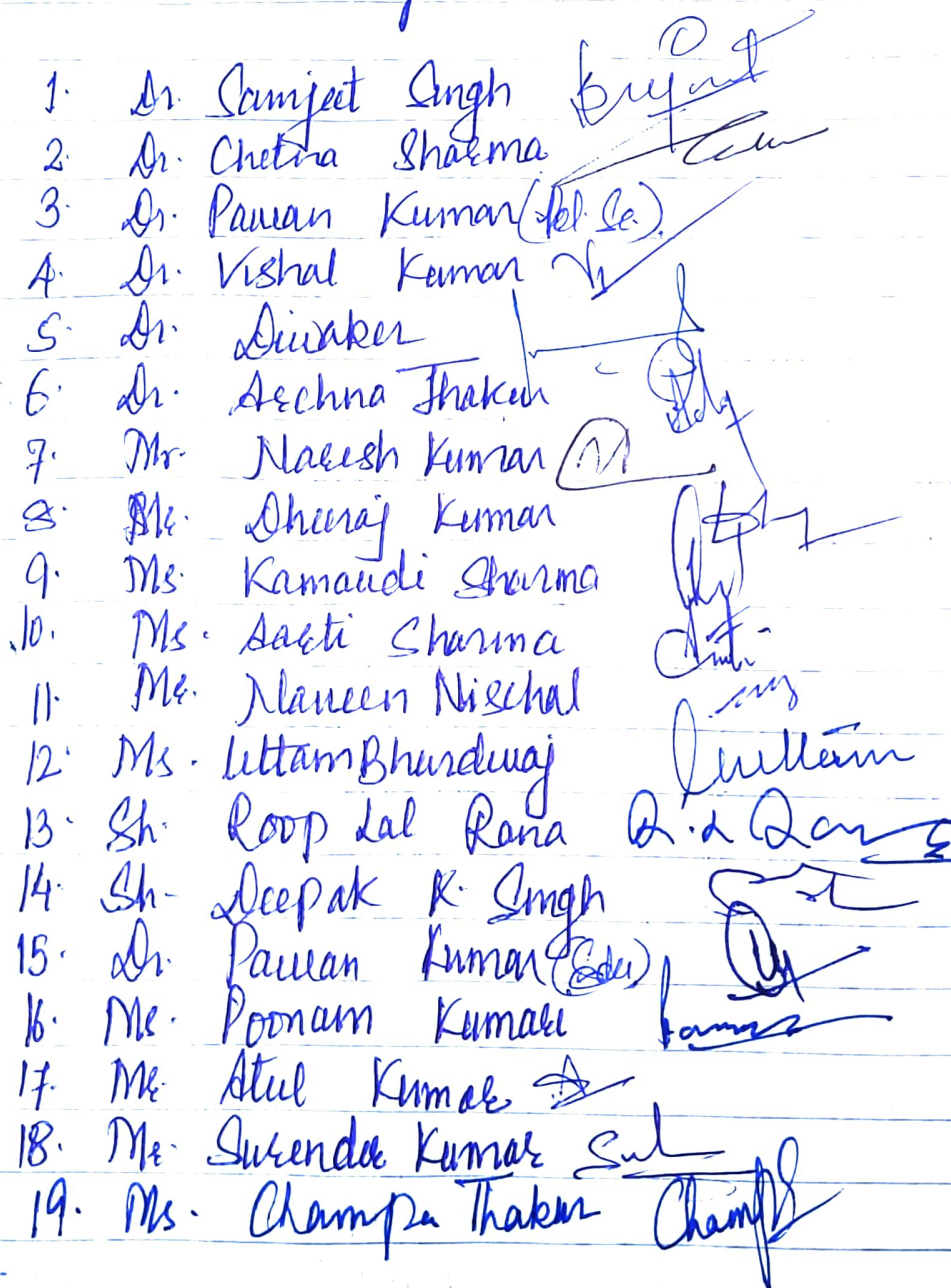 1. Dr. Samjeet Singh
2. Dr. Chetna Sharma
3. Dr. Pawan Kumar (Pol. Sc.)
4. Dr. Vishal Kumar
5. Dr. Diwaker
6. Dr. Archna Thakur
7. Mr. Naresh Kumar
8. Mr. Dheeraj Kumar
9. Ms. Kamaudi Sharma
10. Ms. Aarti Sharma
11. Mr. Naveen Nischal
12. Ms. Uttam Bhardwaj
13. Sh. Roop Lal Rana
14. Sh- Deepak K. Singh
15. Dr. Pawan Kumar (Edu)
16. Ms. Poonam Kumari
17. Mr. Atul Kumar
18. Mr. Surender Kumar
19. Ms. Champa Thakur